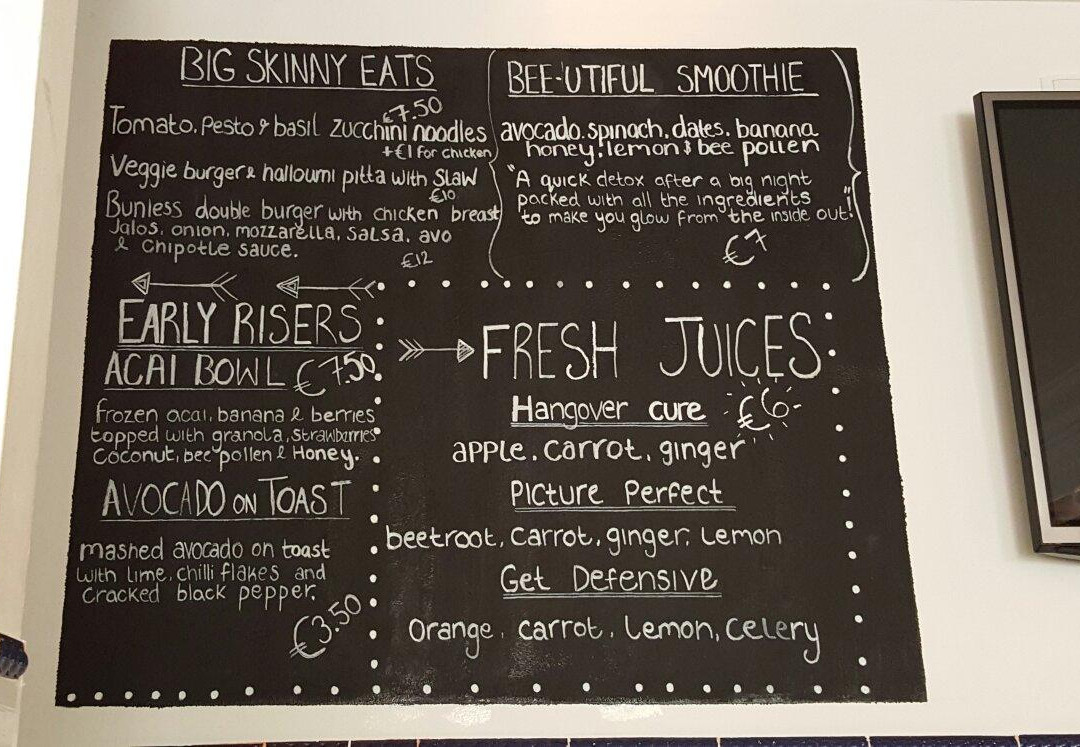 BIG SKINNY EATS
€7.50
Tomato, Pesto & basil zucchini noodles
+€1 for chicken
Veggie burger & halloumi pitta with Slaw
€10
Bunless double burger with chicken breast
Jalos, onion, mozzarella, salsa, avo
& Chipotle sauce.
€12
BEE-UTIFUL SMOOTHIE
avocado, spinach, dates, banana
honey, lemon & bee pollen
"A quick detox after a big night
packed with all the ingredients
to make you glow from the inside out!"
€7
EARLY RISERS
ACAI BOWL €7.50
frozen acai, banana & berries
topped with granola, strawberries
Coconut, bee pollen & Honey.
AVOCADO ON TOAST
mashed avocado on toast
with lime, chilli flakes and
cracked black pepper.
€3.50
FRESH JUICES
Hangover cure €6
apple, carrot, ginger
Picture Perfect
beetroot, carrot, ginger, Lemon
Get Defensive
Orange, carrot, Lemon, celery